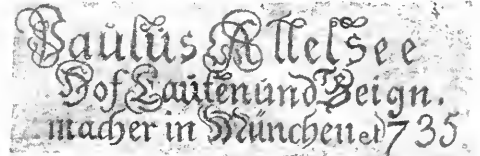 Paulus Alletsee
Hof Lauten und Geign.
macher in München 735